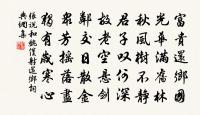 富貴還鄉國
光華滿舊林
秋風樹不靜
君子歎何深
故老空懸劍
鄰交日散金
衆芳搖落盡
獨有歲寒心
張說和魏僕射還鄉詞
典網集